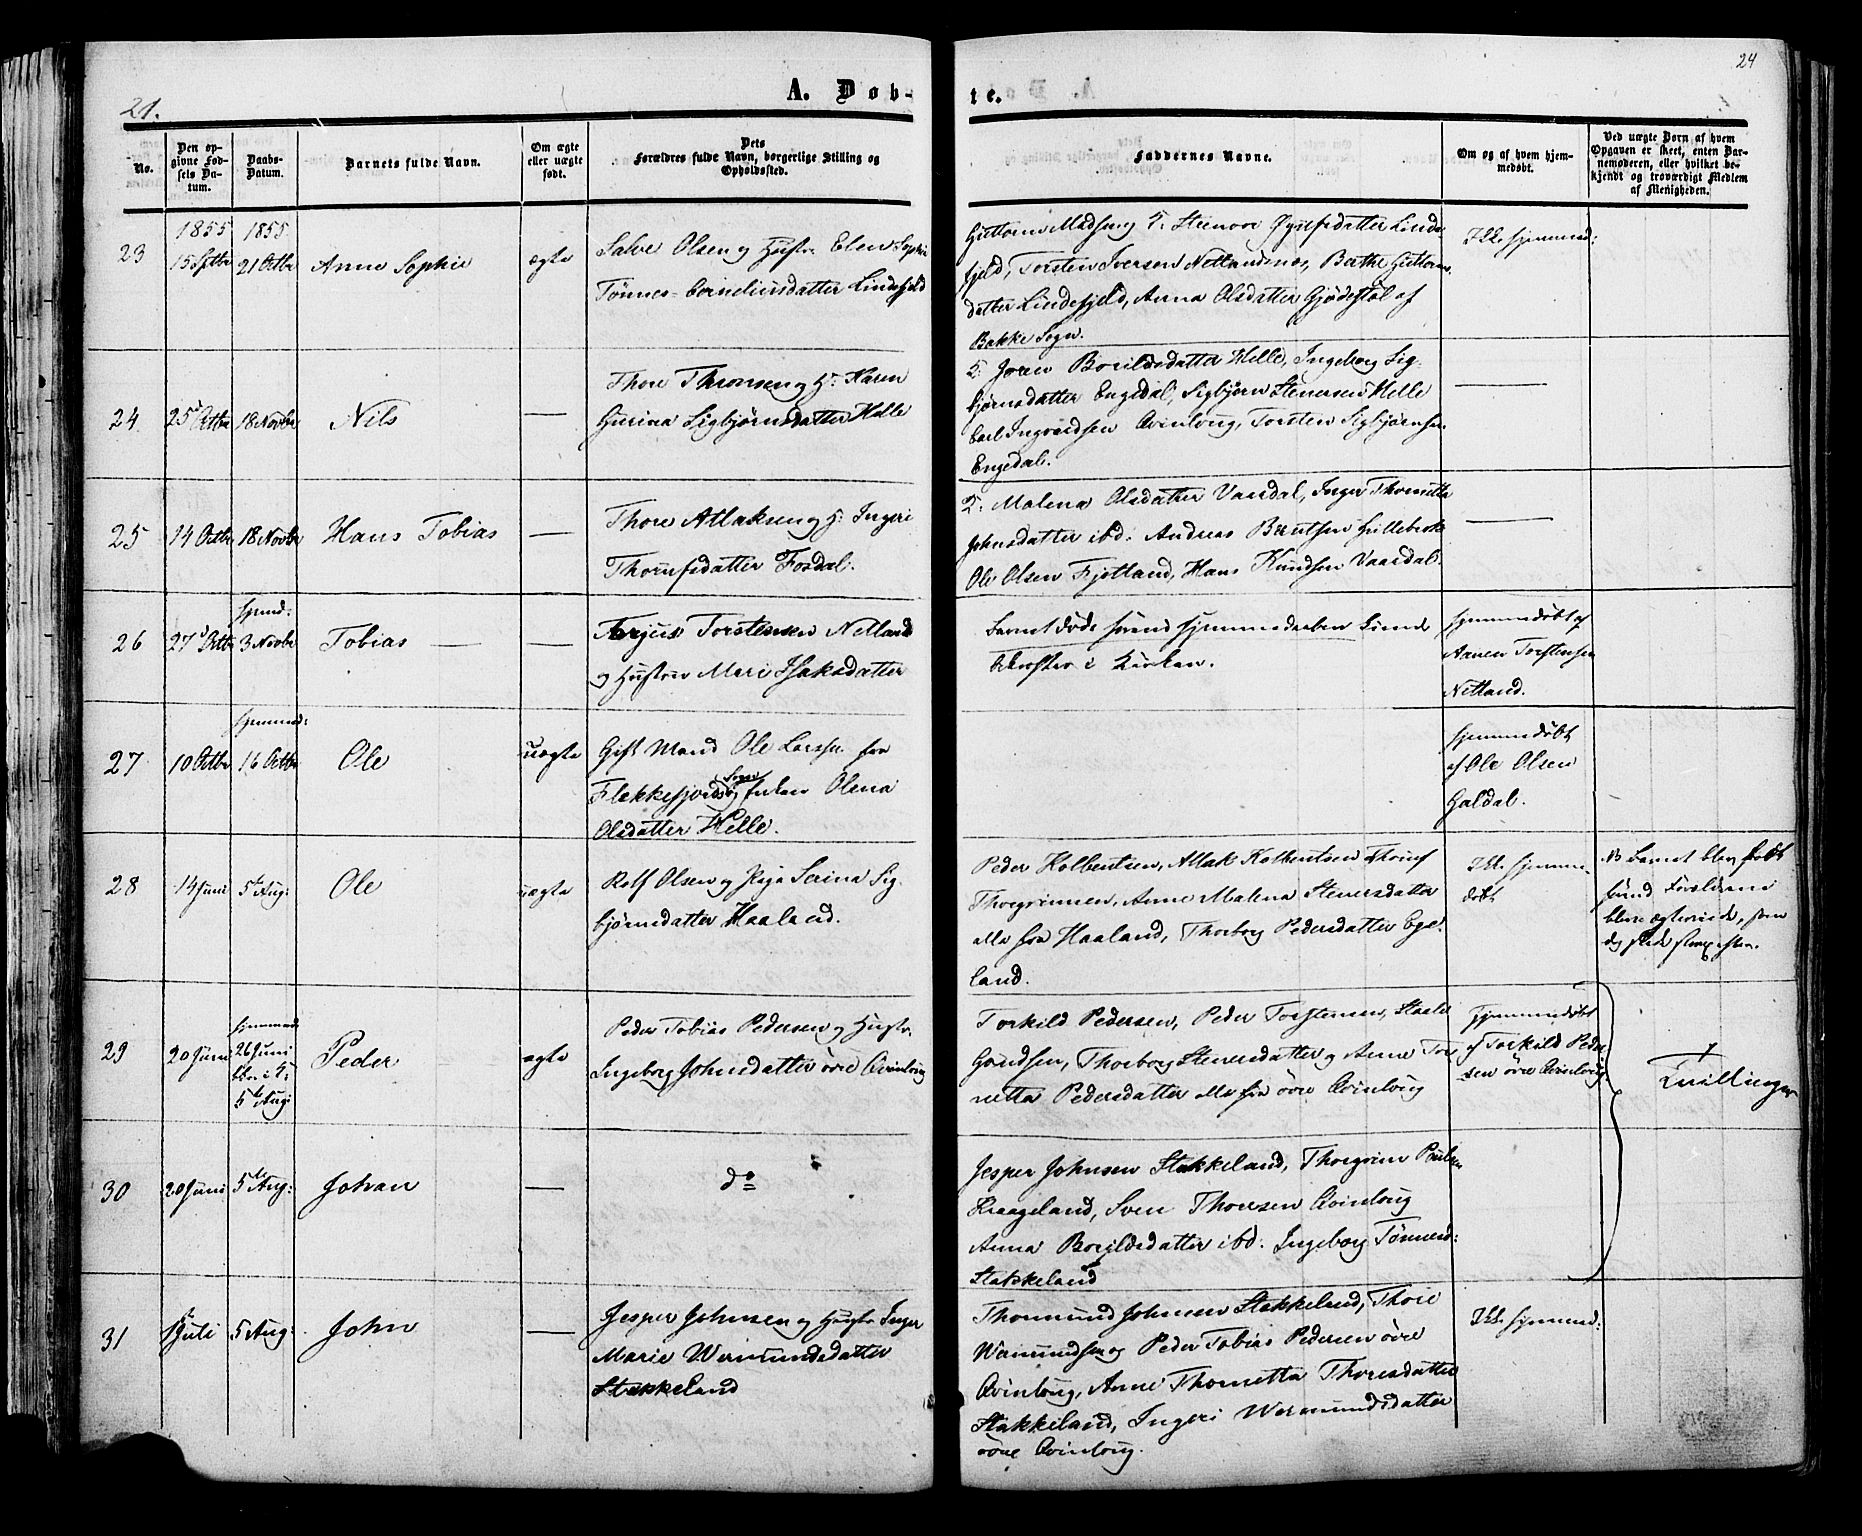 24
21.
A. Døb-
te.
No.
Den op-
givne Fød-
sels Da-
tum.
Daabs-
Datum.
Barnets fulde Navn.
Om ægte
eller uægte
født.
Dets
Forældres fulde Navn, borgerlige Stilling og
Opholdssted.
Faddernes Navne.
Om og af hvem hjem-
medøbt.
Ved uægte Børn af hvem
Opgaven er skeet, enten Bar-
nemoderen, eller hvilket be-
kjendt og troværdigt Medlem
af Menigheden.
1855
1855
23
15 Septbr
21 Octbr
Anne Sophie
ægte
Salve Olsen og Hustr. Elen Sophie
Tønnes-Corneliusdatter Lindefjeld
Guttorm Madsen og Linde-
fjeld, Torsten Iversen Netlandsnes, Berthe Guttorms
datter Lindefjeld, Anna Olsdatter Gjødestøl af
Bakke Sogn.
Ikke hjemmed:
24
25 Octbr
18 Novbr
Nils
—
Thore Thronsen og H: Karen
Gurina Sigbjørnsdatter Helle
K. Joren Borildsdatter Helle, Ingeborg Sig-
bjørnsdatter Engedal, Sigbjørn Stenersen Helle
Carl Ingvaldsen Qvinlaug, Torsten Sigbjørnsen
Engedal.
—
25
14 Octbr
18 Novbr
Hans Tobias
—
Thore Atlaksen og H: Ingeri
Thorufsdatter Fosdal.
K. Malena Olsdatter Vaasdal, Inger Thometta
Johnsdatter ibd: Andreas Berntsen
Ole Olsen Fjotland, Hans Knudsen Vaasdal.
—
26
27 Octbr
hjemd:
3 Novbr
Tobias —
—
Torstensen Netland
og Hustru Mari Isaksdatter
Barnet døde førend Hjemmedaaben kunde
bekræftes i Kirken.
hjemmedøbt af
Torstensen
Netland.
27
10 Octbr
hjemmed:
16 Octbr
Ole
uægte
Gift Mand Ole Larssen fra
Flekkefjords Sogn og Enken Olena
Olsdatter Helle.
hjemmedøbt
af Ole Olsen
Galdal.
28
14 Juni
5te Aug:
Ole
uægte
Rolf Olsen og Pige Serina Sig-
bjørnsdatter Haaland.
Peder Kolbentsen, Atlak Kolbentsen
Thorgrimsen, Anne Malena Stenersdatter
alle fra Haaland, Thorborg Pedersdatter Ege-
land.
Ikke hjemme-
døbt
NB Barnet blev født
førend Forældrene
bleve ægteviede, som
dog skede strax efter.
29
20 Juni
hjemmed
26 Juni
5te Aug:
Peder
ægte
Peder Tobias Pedersen og Hustr.
Ingeborg Johnsdatter øvre Qvinlaug
Torkild Pedersen, Peder Torstensen, Staale
Thorborg Stenersdatter og Anne Tor
netta Pedersdatter alle fra øvre Qvinlaug
Hjemmedøbt
af Torkild Peder
sen øvre Qvinlaug.
Tvillinger
30
20 Juni
5te Aug:
Johan
—
do
Jesper Johnsen Stakkeland, Thorgrim Paulsen
Kraageland, Sven Thorsen Qvinlaug
Anna Boyildsdatter ibd. Ingeborg Tønnesd:
Stakkeland
31
1 Juli
5 Aug:
John
—
Jesper Johnsen og Hustr Inger
Marie Wermundsdatter
Stakkeland
Thormund Johnsen Stakkeland, Thore
Wermundsen og Peder Tobias Pedersen øvre
Qvinlaug, Anne Thometta Thoresdatter
Stakkeland, Ingeri Wermundsdatter
øvre Qvinlaug.
Ikke hjemmed: